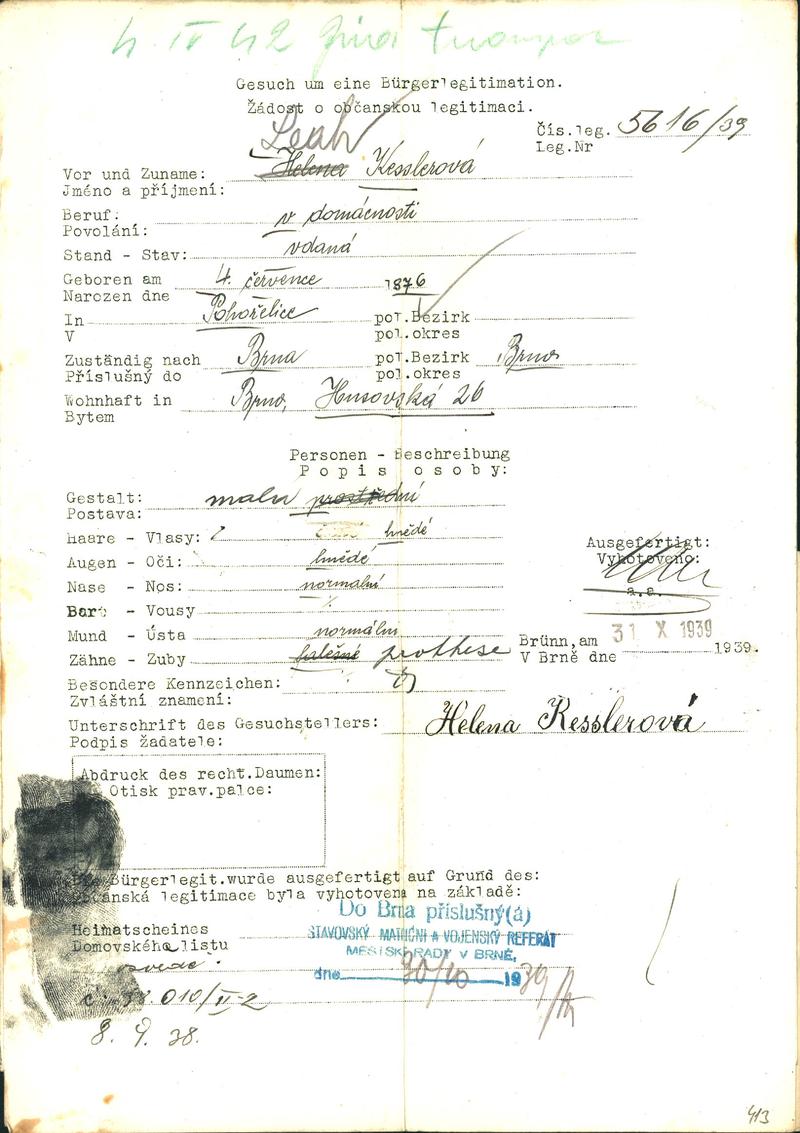 4 IV 42
Gesuch um eine Bürgerlegitimation.
Žádost o občanskou legitimaci.
Čís.leg. 5616/39
Leg.Nr
Leah
Vor und Zuname: Helena Kesslerová
Jméno a příjmení:
Beruf: v domácnosti
Povolání:
Stand - Stav: vdaná
Geboren am 4. července 1876
Narozen dne
In Pohořelice pol.Bezirk
V pol.okres
Zuständig nach Brna pol.Bezirk Brno
Příslušný do pol.okres
Wohnhaft in Brno, Husovská 26
Bytem
Personen - Beschreibung
Popis osoby:
Gestalt: malá prostřední
Postava:
Haare - Vlasy: hnědé
Augen - Oči: hnědé
Nase - Nos: normalní
Bart - Vousy
Mund - Ústa normální
Zähne - Zuby falešné prothese
Ausgefertigt:
Vyhotoveno:
a.a.
Brünn,am 31 X 1939 1939.
V Brně dne
Besondere Kennzeichen:
Zvláštní znamení:
Unterschrift des Gesuchstellers: Helena Kesslerová
Podpis žadatele:
Abdruck des recht.Daumen:
Otisk prav.palce:
Bürgerlegit.wurde ausgefertigt auf Grund des:
občanská legitimace byla vyhotovena na základě:
Do Brna příslušný(á)
STAVOVSKÝ MATRIČNÍ A VOJENSKÝ REFERÁT
MĚSTSKÉ RADY V BRNĚ,
dne 30/10 1939
Heimatscheines
Domovského listu
č. 38 010/II-2
8. 9. 38.
413